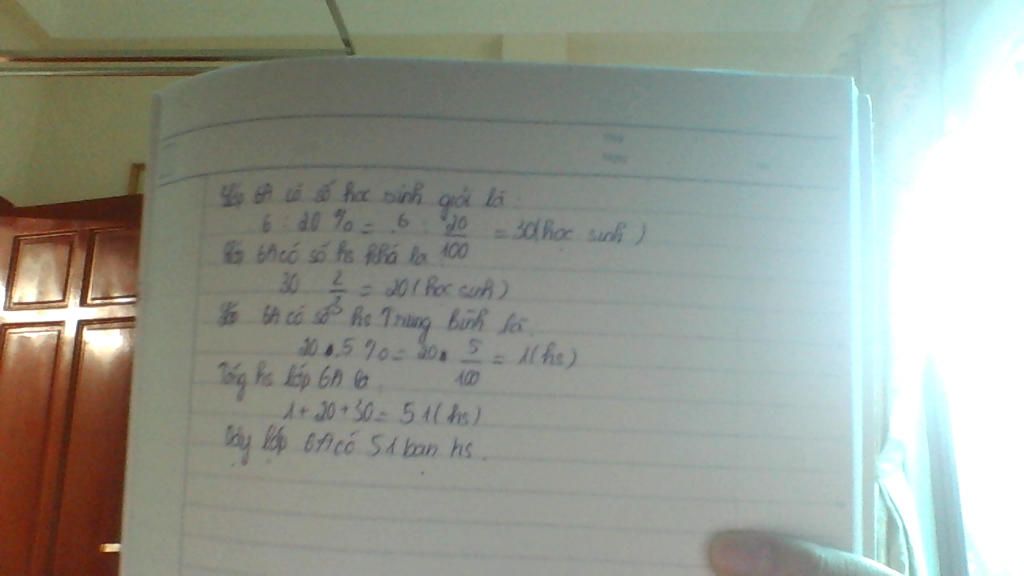 Lớp 6A có số học sinh giỏi là:
6 : 20 % = 6 : 20/100 = 30(học sinh)
Lớp 6A có số hs khá là
30 2/3 = 20 (học sinh)
Lớp 6A có số hs Trung Bình là.
20 . 5 % = 20 . 5/100 = 1(hs)
Tổng hs lớp 6A là
1 + 20 + 30 = 51(hs)
Vậy lớp 6A có 51 bạn hs.